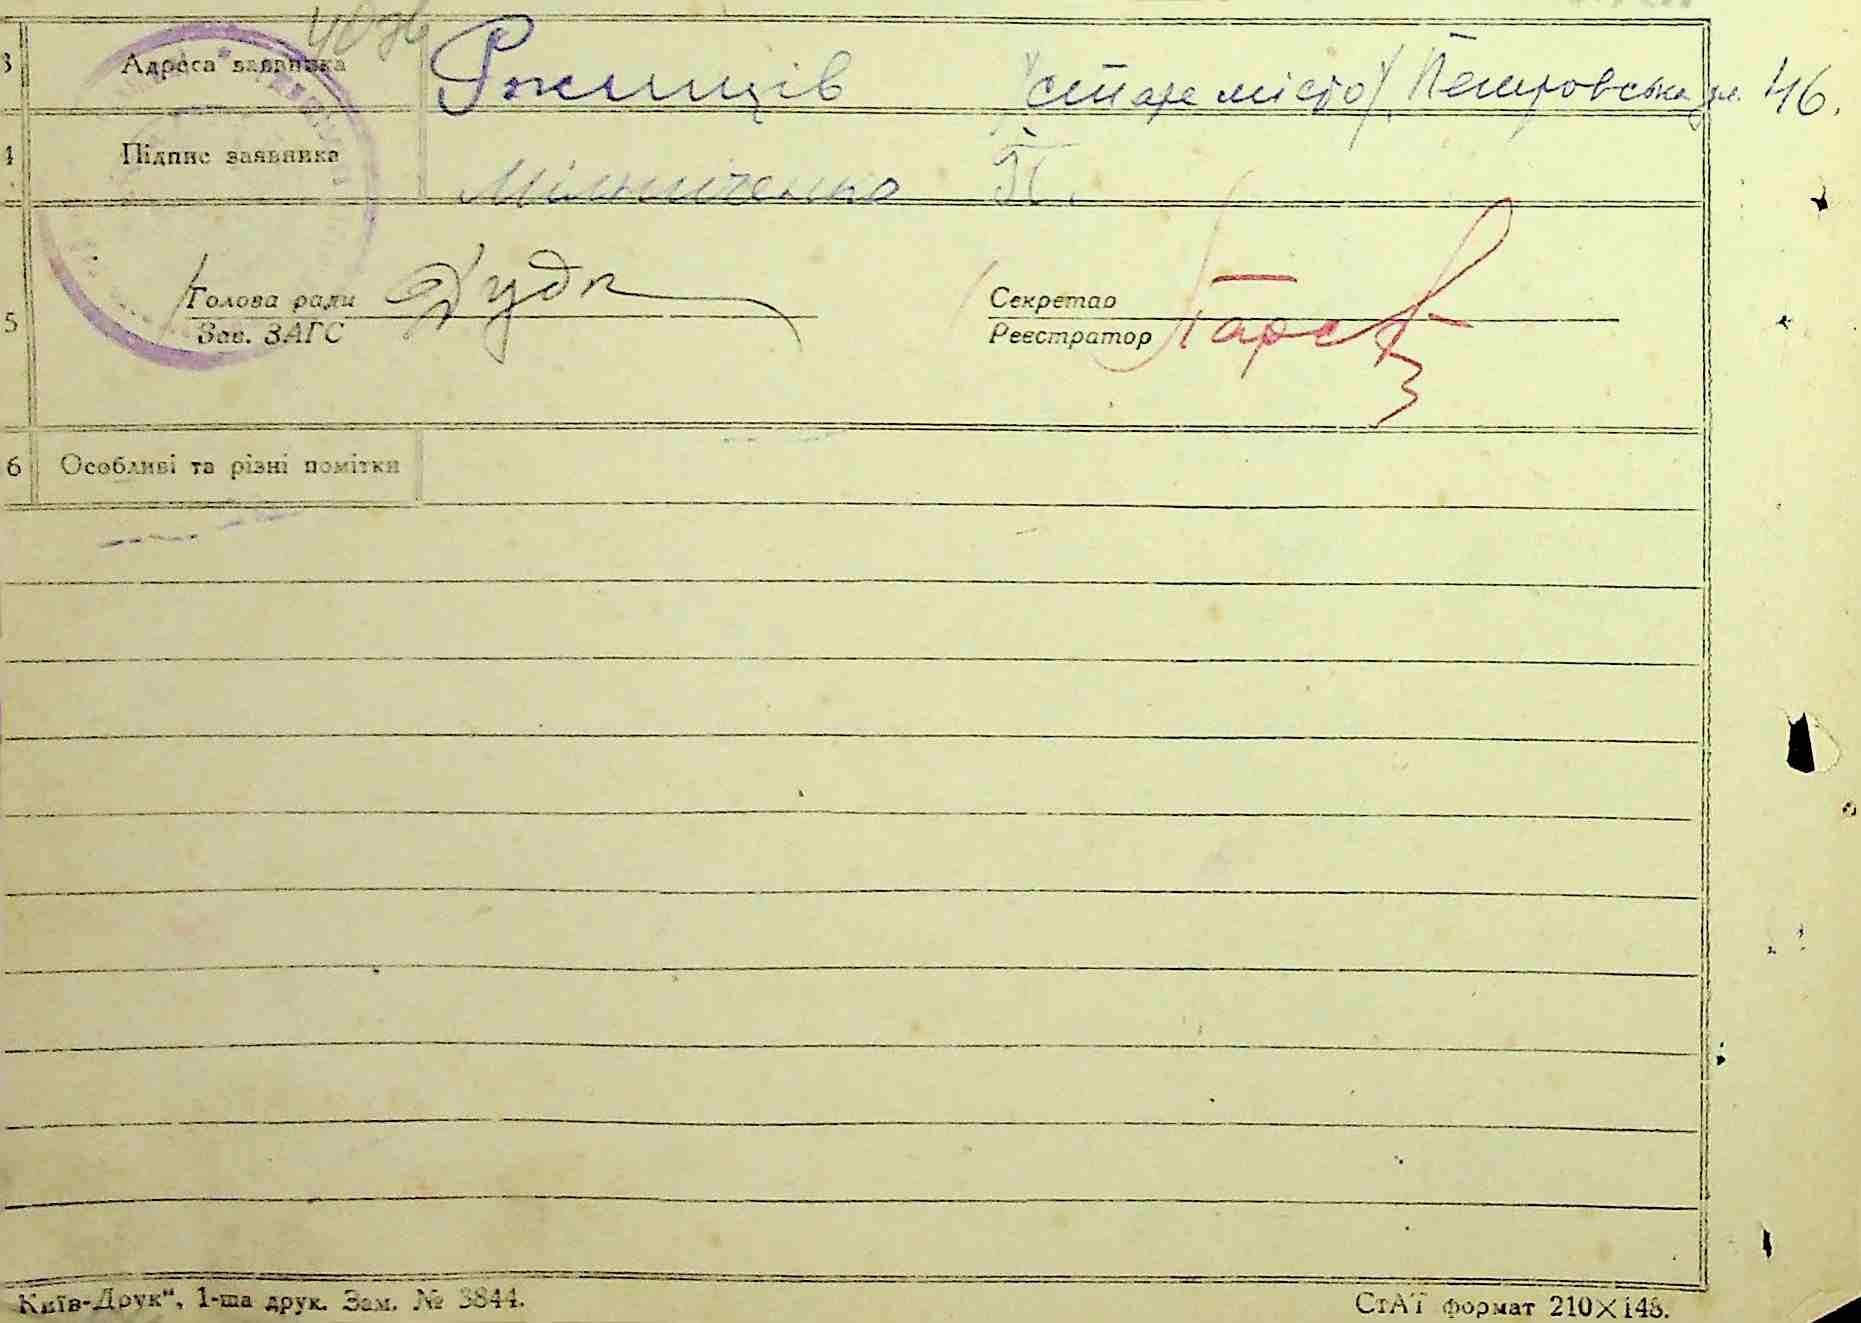 3 Адреса заявника Ржищів /старе місто/, Петровська вул. 46.
4 Підпис заявника Мільниченко П.
Голова ради Дуда Секретар
5 Зав. ЗАГС Реєстратор
6 Особливі та різні помітки
Київ-Друк", 1-ша друк. Зам. № 3844. СтАТ формат 210×148.